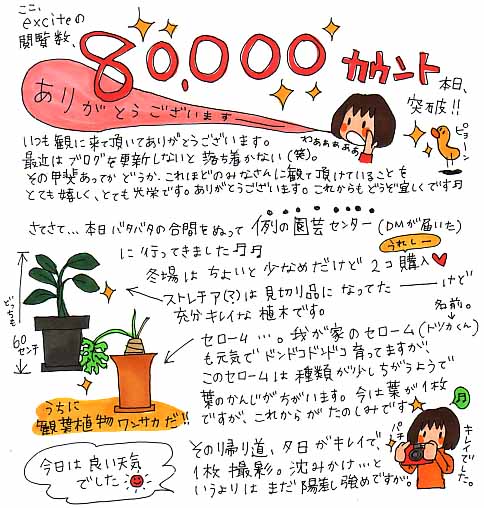 ここ、
exciteの
閲覧数、
80,000 カウント
本日、
突破!!
ありがとうございます
わぁぁぁぁぁ
ピョーン
いつも観に来て頂いてありがとうございます。
最近はブログを更新しないと落ち着かない(笑)。
その甲斐あってかどうか、これほどのみなさんに観て頂けていることを
とても嬉しく、とても光栄です。ありがとうございます。これからもどうぞ宜しくです♬
さてさて…本日バタバタの合間をぬって 例の園芸センター(DMが届いた)
に行ってきました♬♬
うれしー
冬場はちょいと少なめだけど 2コ購入♥
ストレチア(?)は見切り品になってたーーけど
充分キレイな植木です。
どっちも
60センチ
名前。
セローム…。我が家のセローム(トツカくん)
も元気でドンドコドンドコ育ってますが、
このセロームは種類が少しちがうようで
葉のかんじが方がいます。今は葉が1枚
ですが、これからがたのしみです☆
うちに
観葉植物ワンサカだ!!
その帰り道、夕日がキレイで、
1枚撮影。沈みかけ…と
いうよりはまだ陽差し強めですが。
パチ
キレイでした。
今日は良い天気
でした